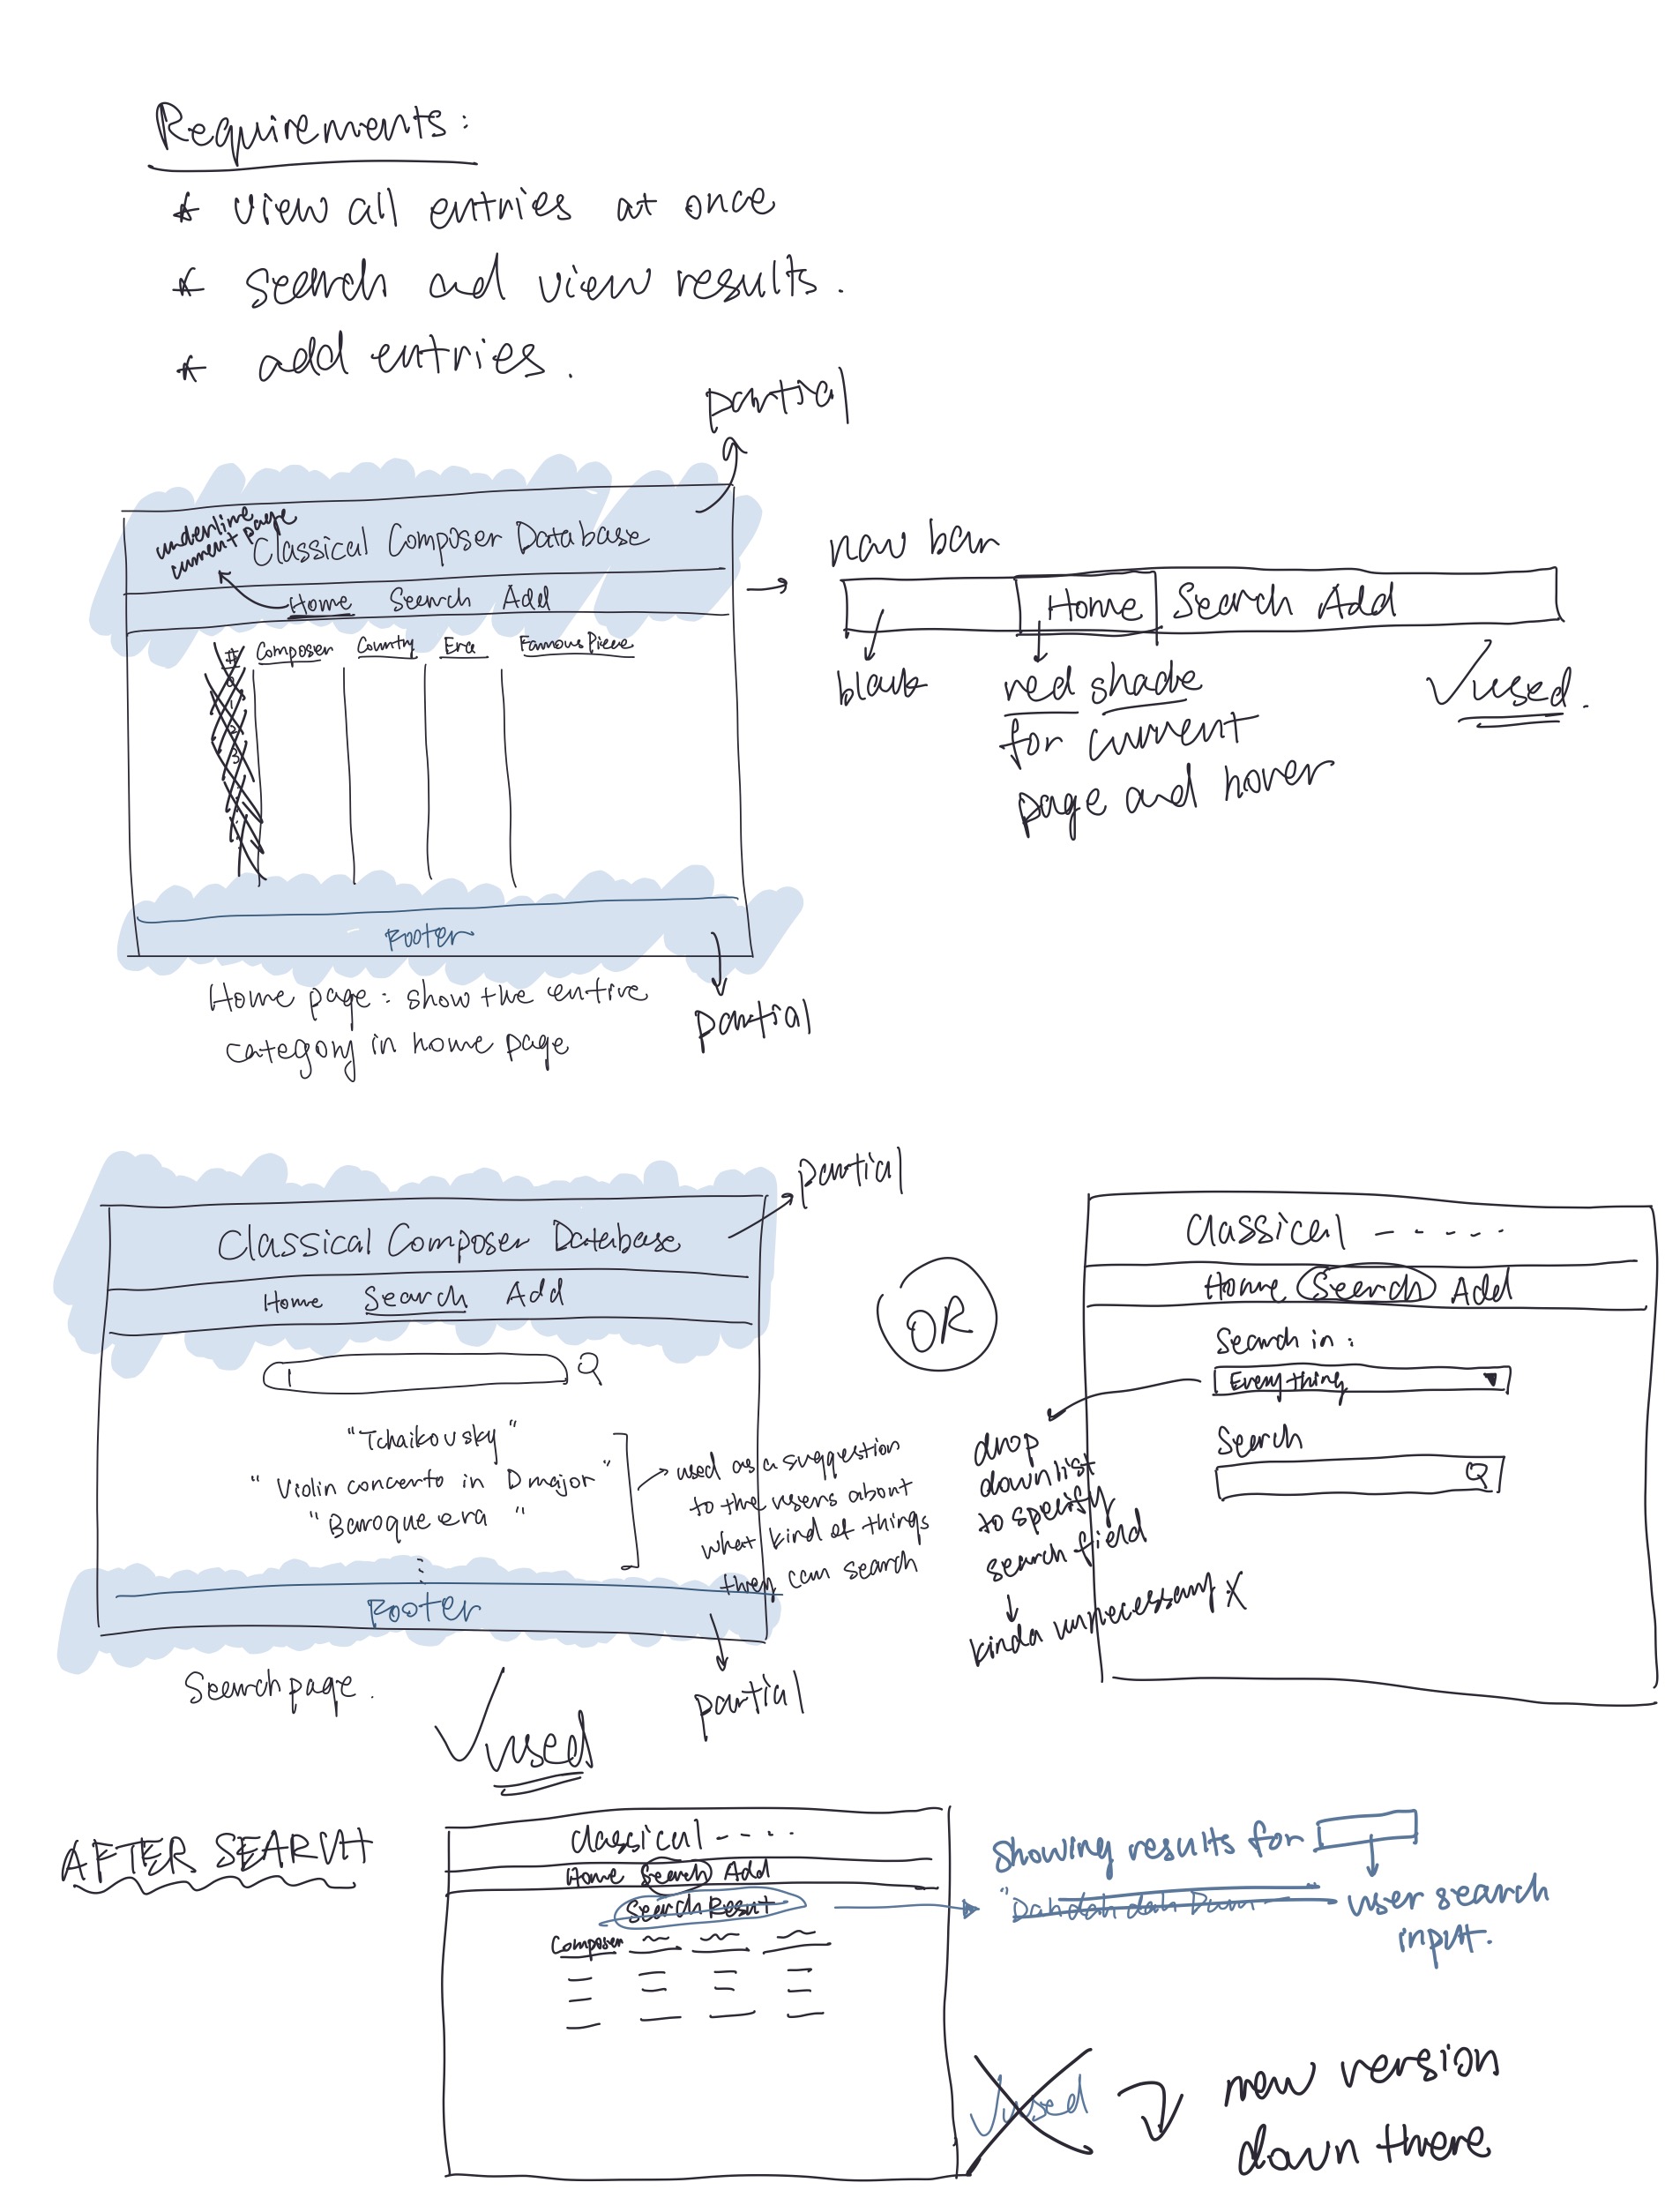 Requirements:
* view all entries at once
* search and view results.
* add entries.
partial
underline
current page
Classical Composer Database
Home Search Add
# Composer Country Era Famous Piece
0
1
2
3
Footer
partial
Home page: show the entire
category in home page
nav bar
Home Search Add
black
red shade
for current
page and hover
used.
partial
Classical Composer Database
Home Search Add
"Tchaikovsky"
"Violin concerto in D major"
"Baroque era"
used as a suggestion
to the users about
what kind of things
they can search
Footer
Search page.
partial
used
OR
Classical - - - - -
Home Search Add
Search in:
Everything
Search
drop
down list
to specify
search field
kinda unnecessary X
AFTER SEARCH
Classical - - - -
Home Search Add
Search Result
Composer
Showing results for
"Dah dah dah Dum
user search
input.
used
new version
down there